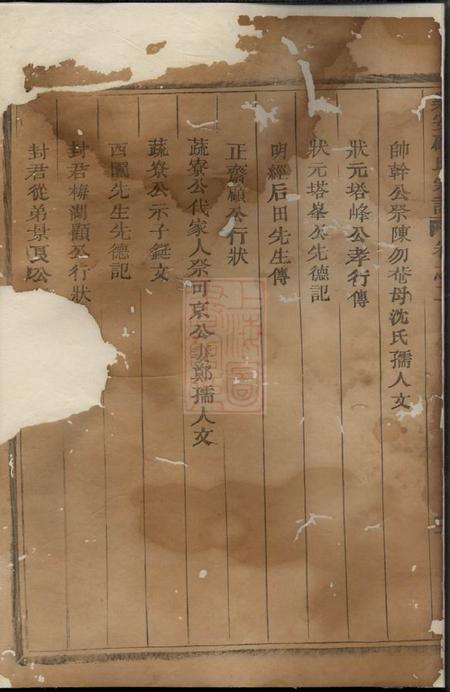 帥幹公祭陳勿菴母沈氏孺人文
狀元塔峰公孝行傳
狀元塔峯公先德記
明經后田先生傳
正齋顧公行狀
蔬寮公代家人祭可京公妻鄭孺人文
蔬寮公示子鋌文
西園先生先德記
封君梅湖顧公行狀
封君從弟景